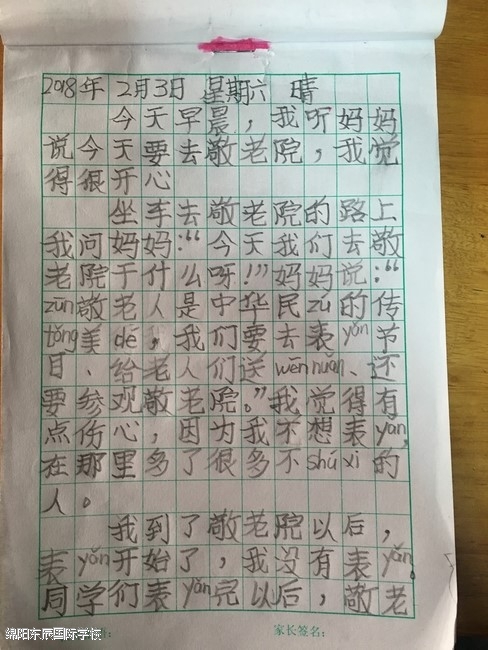 2018年 2月3日 星期六 晴
今天早晨，我听妈妈
说今天要去敬老院，我觉
得很开心
坐车去敬老院的路上
我问妈妈：“今天我们去敬
老院干什么呀！”妈妈说：“
zūn敬老人是中华民zú的传
tǒng美dé，我们要去表yǎn节
目、给老人们送wēnnuǎn、还
要参观敬老院。”我觉得有
点伤心，因为我不想表yǎn，
在那里多了很多不shúxi的
人。
我到了敬老院以后，
表yǎn开始了，我没有表yǎn。
同学们表yǎn完以后，敬老
绵阳东辰国际学校
家长签名：